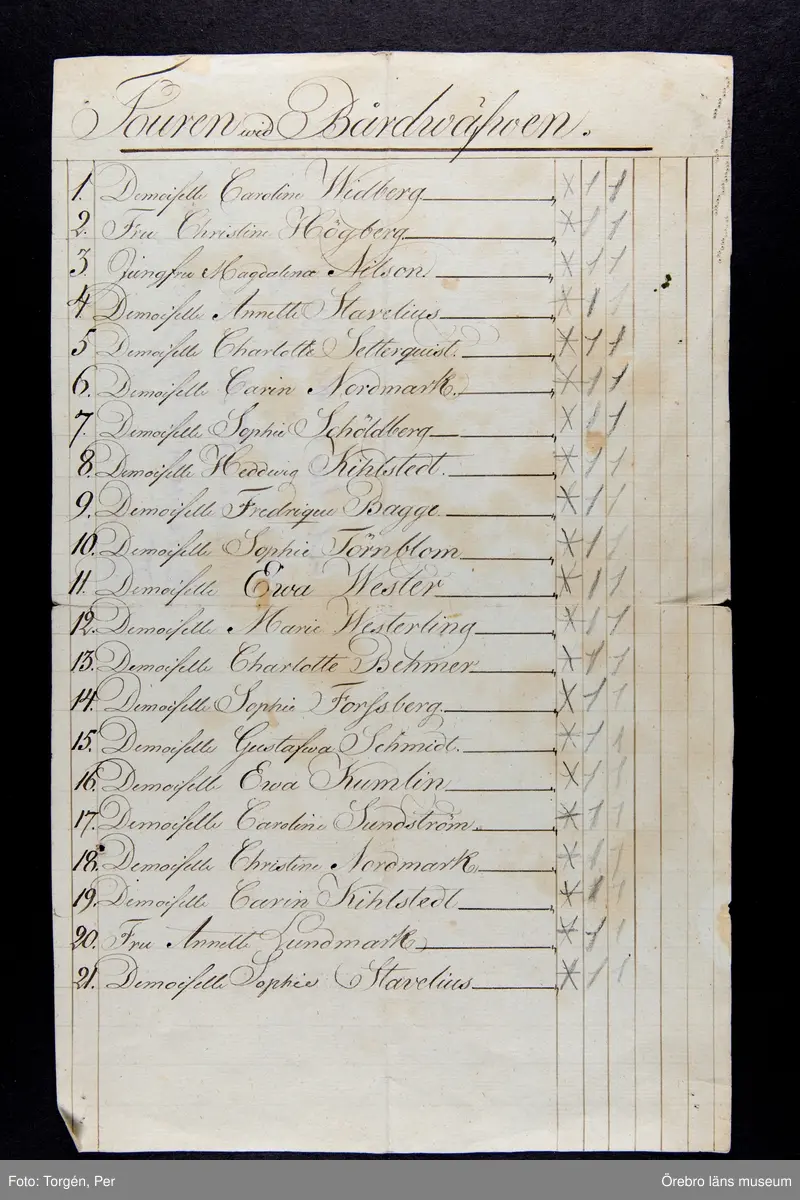 Touren wid Bårdwäfwen.
1. Demoiselle Caroline Widberg
2. Fru Christine Högberg
3. Jungfru Magdalena Nilson.
4 Demoiselle Annette Stavelius
5 Demoiselle Charlotte Setterquist.
6. Demoiselle Carin Nordmark.
7. Demoiselle Sophie Schöldberg
8. Demoiselle Heddwig Kihlstedt.
9. Demoiselle Fredrique Bagge.
10. Demoiselle Sophie Törnblom
11. Demoiselle Ewa Wester
12. Demoiselle Marie Westerling
13. Demoiselle Charlotte Behmer
14. Demoiselle Sophie Forssberg
15. Demoiselle Gustafwa Schmidt.
16. Demoiselle Ewa Kumlin
17. Demoiselle Caroline Sundström
18. Demoiselle Christine Nordmark
19. Demoiselle Carin Kihlstedt
20. Fru Annette Lundmark
21. Demoiselle Sophie Stavelius
Foto: Torgén, Per
Örebro läns museum